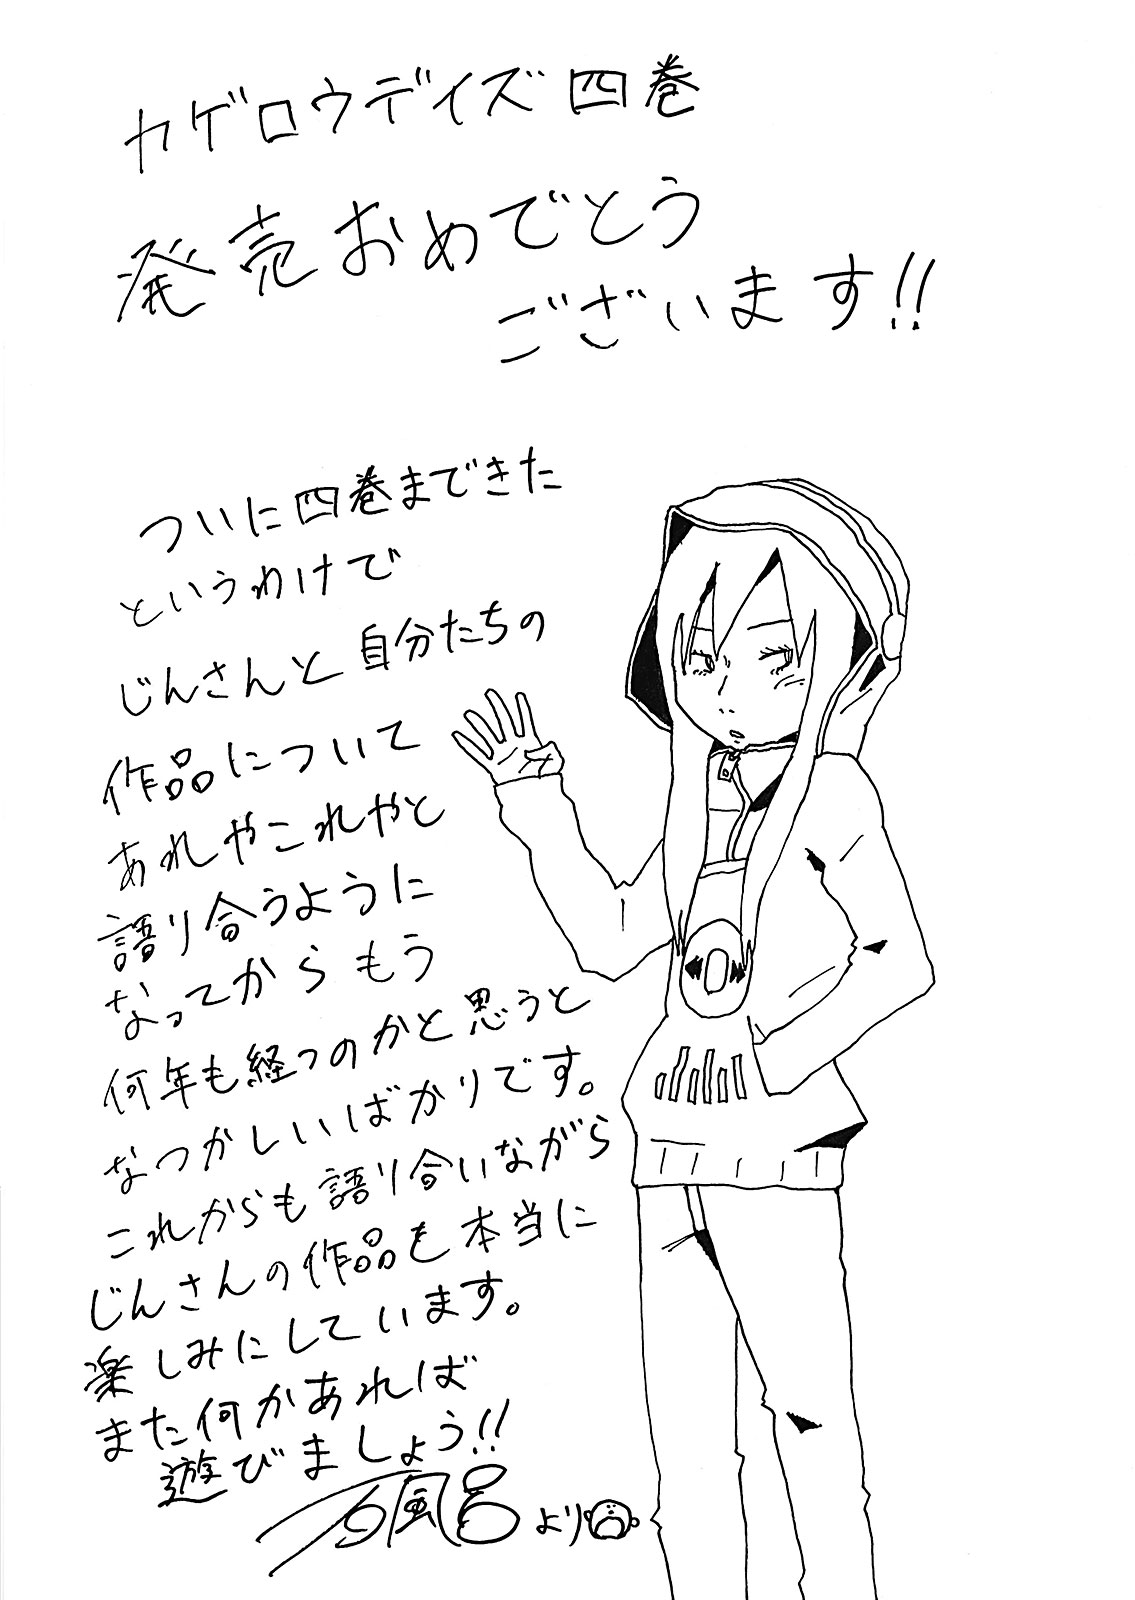 カゲロウデイズ四巻
発売おめでとう
ございます!!
ついに四巻まできた
というわけで
じんさんと自分たちの
作品について
あれやこれやと
語り合うように
なってからもう
何年も経つのかと思うと
なつかしいばかりです。
これからも語り合いながら
じんさんの作品を本当に
楽しみにしています。
また何かあれば
遊びましょう!!
石風呂より